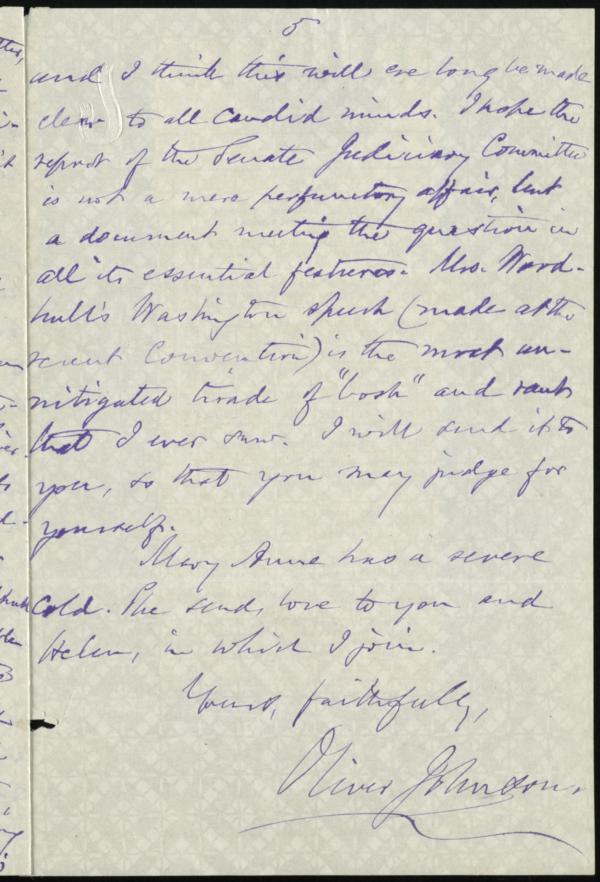 5
and I think this will ere long be made
clear to all candid minds. I hope the
report of the Senate Judiciary Committee
is not a mere perfunctory affair, but
a document meeting the question in
all its essential features. Mrs. Wood-
hull's Washington speech (made at the
recent Convention) is the most un-
mitigated tirade of "bosh" and rant
that I ever saw. I will send it to
you, so that you may judge for
yourself.
Mary Anne has a severe
cold. She sends love to you and
Helen, in which I join.
Yours, faithfully,
Oliver Johnson.